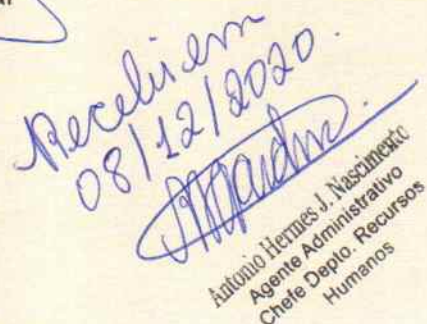 Recebi em
08/12/2020.
Antonio Hermes J. Nascimento
Agente Administrativo
Chefe Depto. Recursos
Humanos